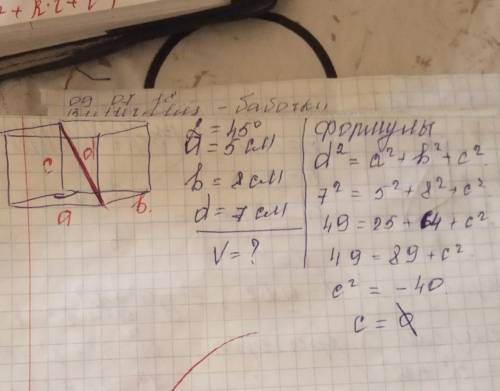 - бабочки
∠ = 45°
a = 5 см
b = 8 см
d = 7 см
V = ?
c
d
a
b.
Формулы
d² = a² + b² + c²
7² = 5² + 8² + c²
49 = 25 + 64 + c²
49 = 89 + c²
c² = -40
c = ∅